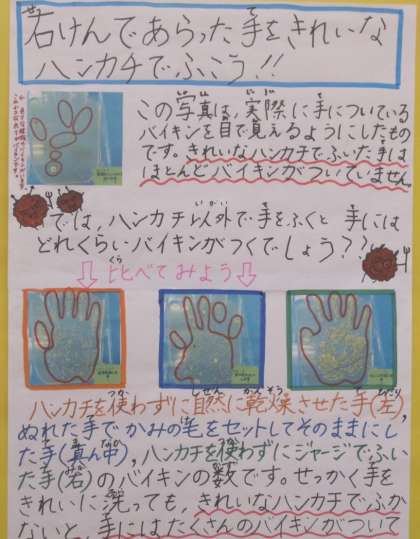 石けんであらった手をきれいな
ハンカチでふこう!!
この写真は、実際に手についている
バイキンを目で見えるようにしたもの
です。きれいなハンカチでふいた手は
ほとんどバイキンがついていません
では、ハンカチ以外で手をふくと 手には
どれくらいバイキンがつくでしょう??
比べてみよう
ハンカチを使わずに自然に乾燥させた手(左)、
ぬれた手でかみの毛をセットしてそのままにし
た手(真ん中)、ハンカチを使わずにジャージでふい
た手(右)のバイキンの数です。せっかく手を
きれいに洗っても、きれいなハンカチでふか
ないと、手にはたくさんのバイキンがついて